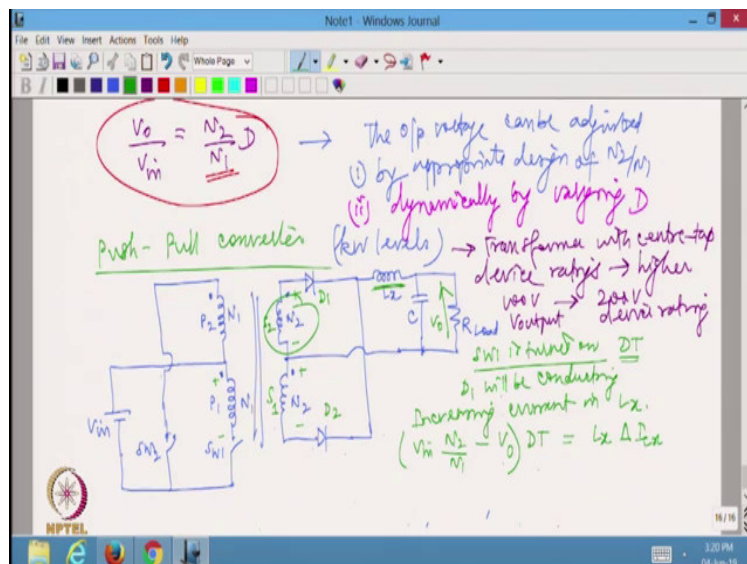 Note1 - Windows Journal
File Edit View Insert Actions Tools Help
Whole Page
B I
Vo/Vin = N2/N1 D → The o/p voltage can be adjusted
(i) by appropriate design of N2/N1
(ii) dynamically by varying D
Push-Pull converter (kW levels) → Transformer with centre-tap
device ratings → higher
100V → 200V
Voutput device rating
P2 N1 S2 N2 D1 Lx C Vo RLoad
Vin SW2 P1 N1 SW1 S1 N2 D2
SW1 is turned on DT
D1 will be conducting
Increasing current in Lx.
(Vin N2/N1 - Vo) DT = Lx ΔILx
NPTEL
16/16
3:20 PM
04-Jun-19